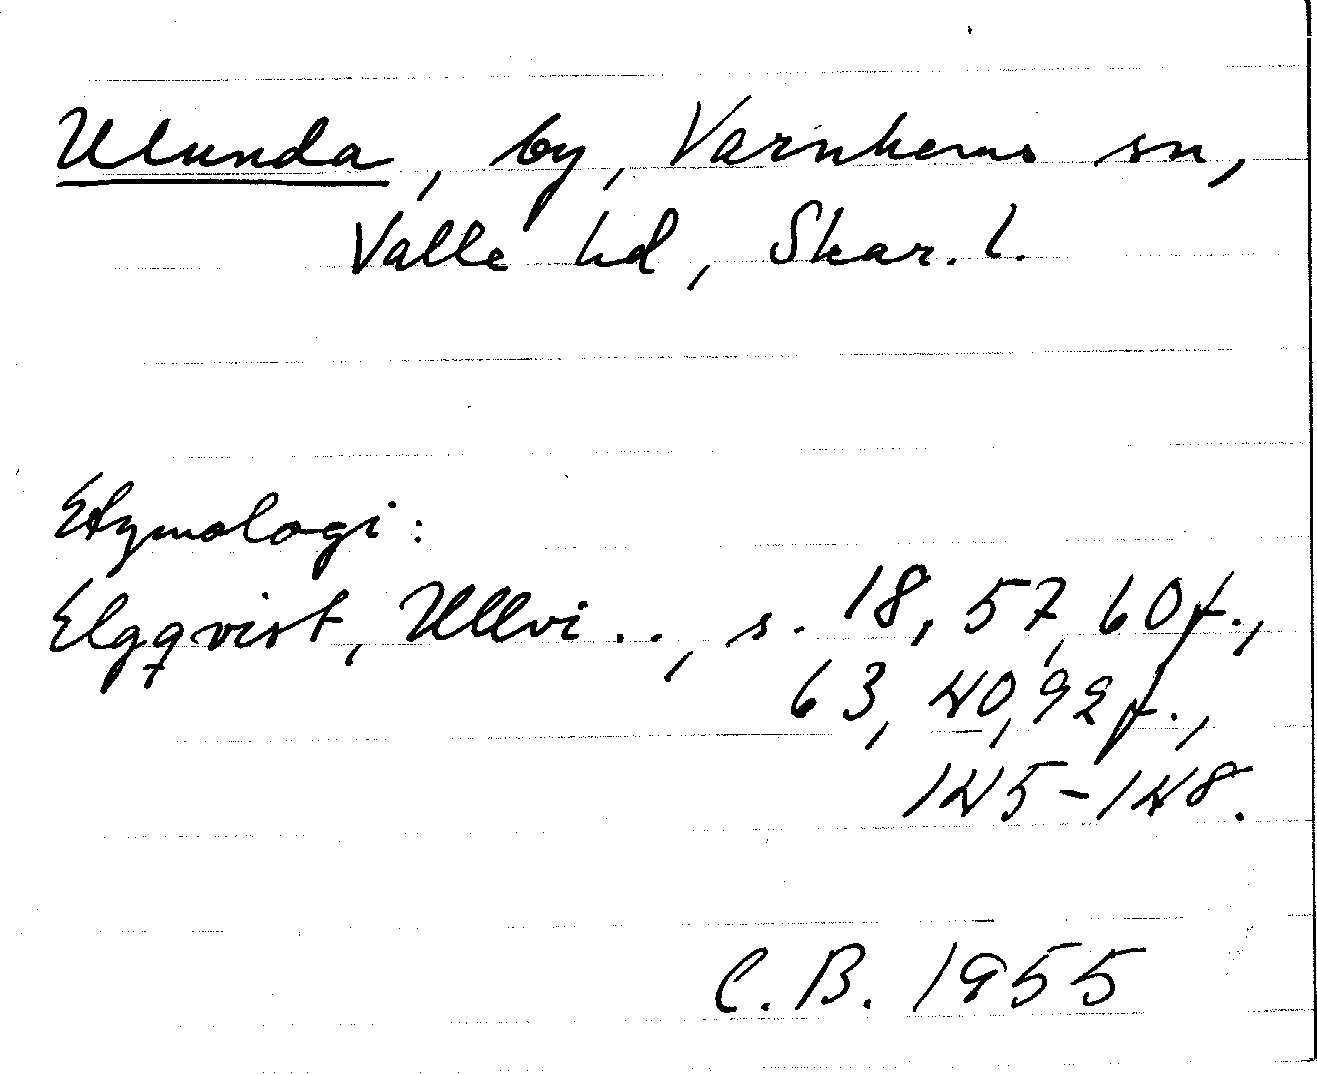 Ulunda, by, Varnhems sn,
Valle hd, Skar. l.
Etymologi:
Elgqvist, Ullvi . . , s. 18, 57, 60 f.,
63, 40, 92 f.,
145-148.
C. B. 1955